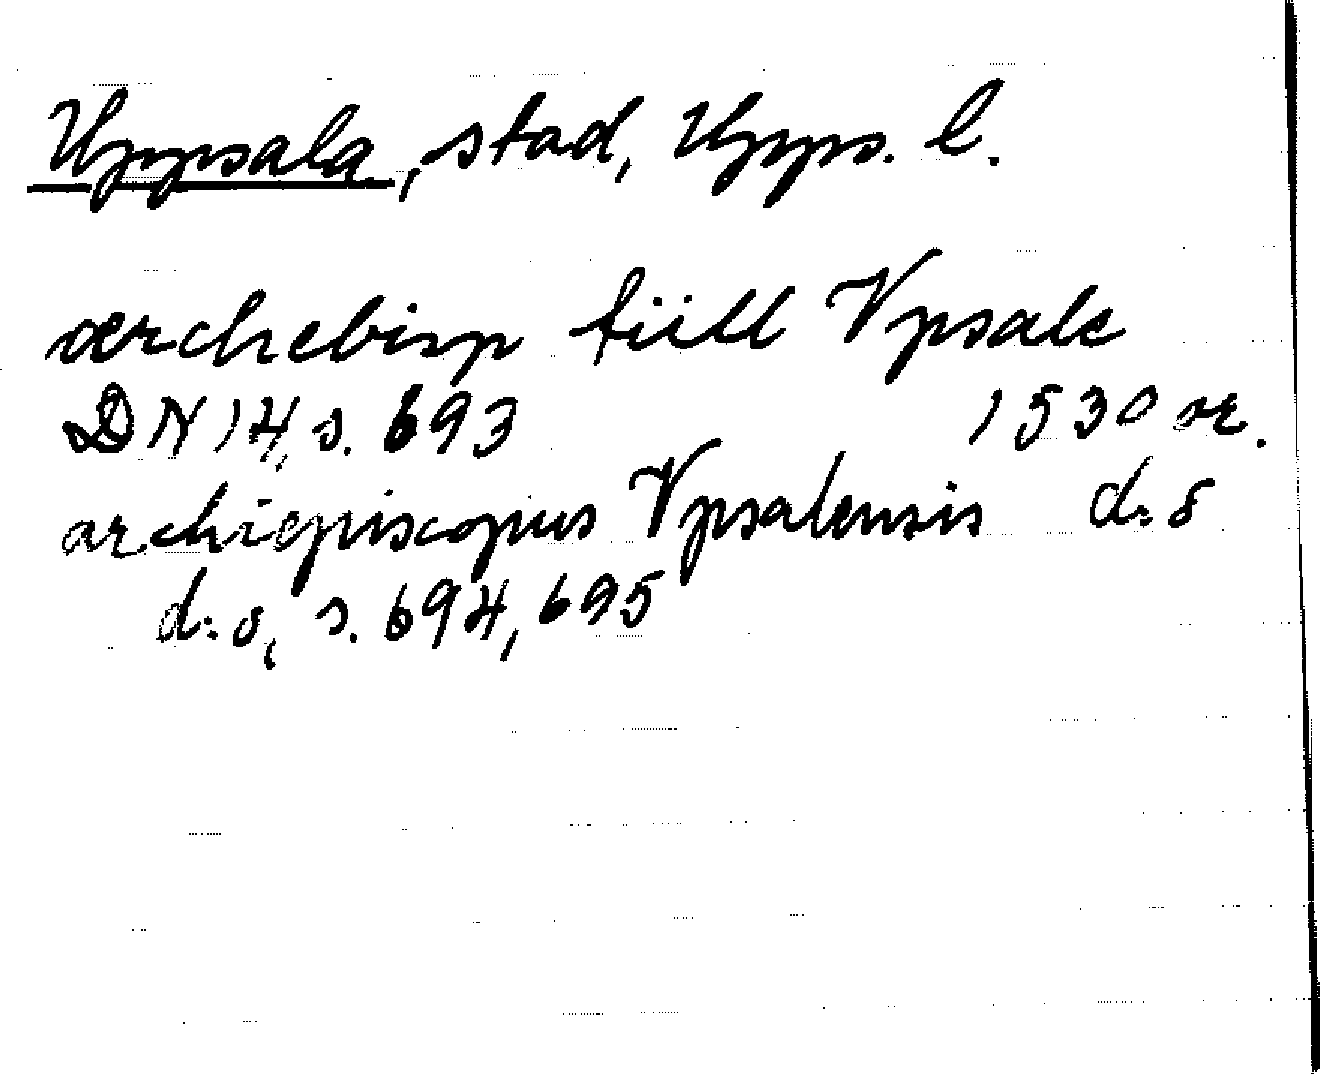 Uppsala, stad, Upps. l.
ærchebisp tiill Vpsale
DN 14, s. 693 1530 or.
archiepiscopus Vpsalensis d:o
d:o, s. 694, 695